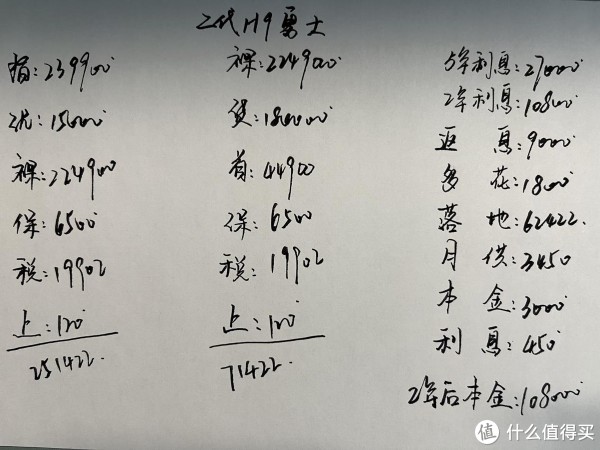 二代H9勇士
指:239900
优:15000
裸:224900
保:6500
税:19902
上:120
251422.
裸:224900
贷:180000
首:44900
保:6500
税:19902
上:120
71422.
5年利息:27000
2年利息:10800
返息:9000
多花:1800
落地:62422.
月供:3450
本金:3000
利息:450
2年后本金:108000
值 什么值得买